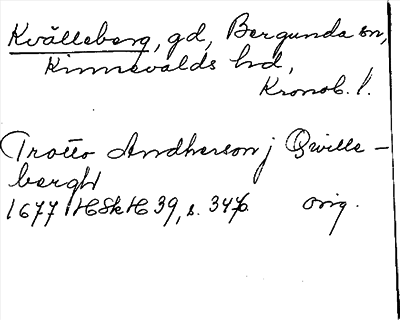 Kvälleberg, gd, Bergunda sn,
Kinnevalds hrd,
Kronob. l.
Trotto Andherson j Qwille-
berghl
1677 HSkH 39, s. 346. orig.